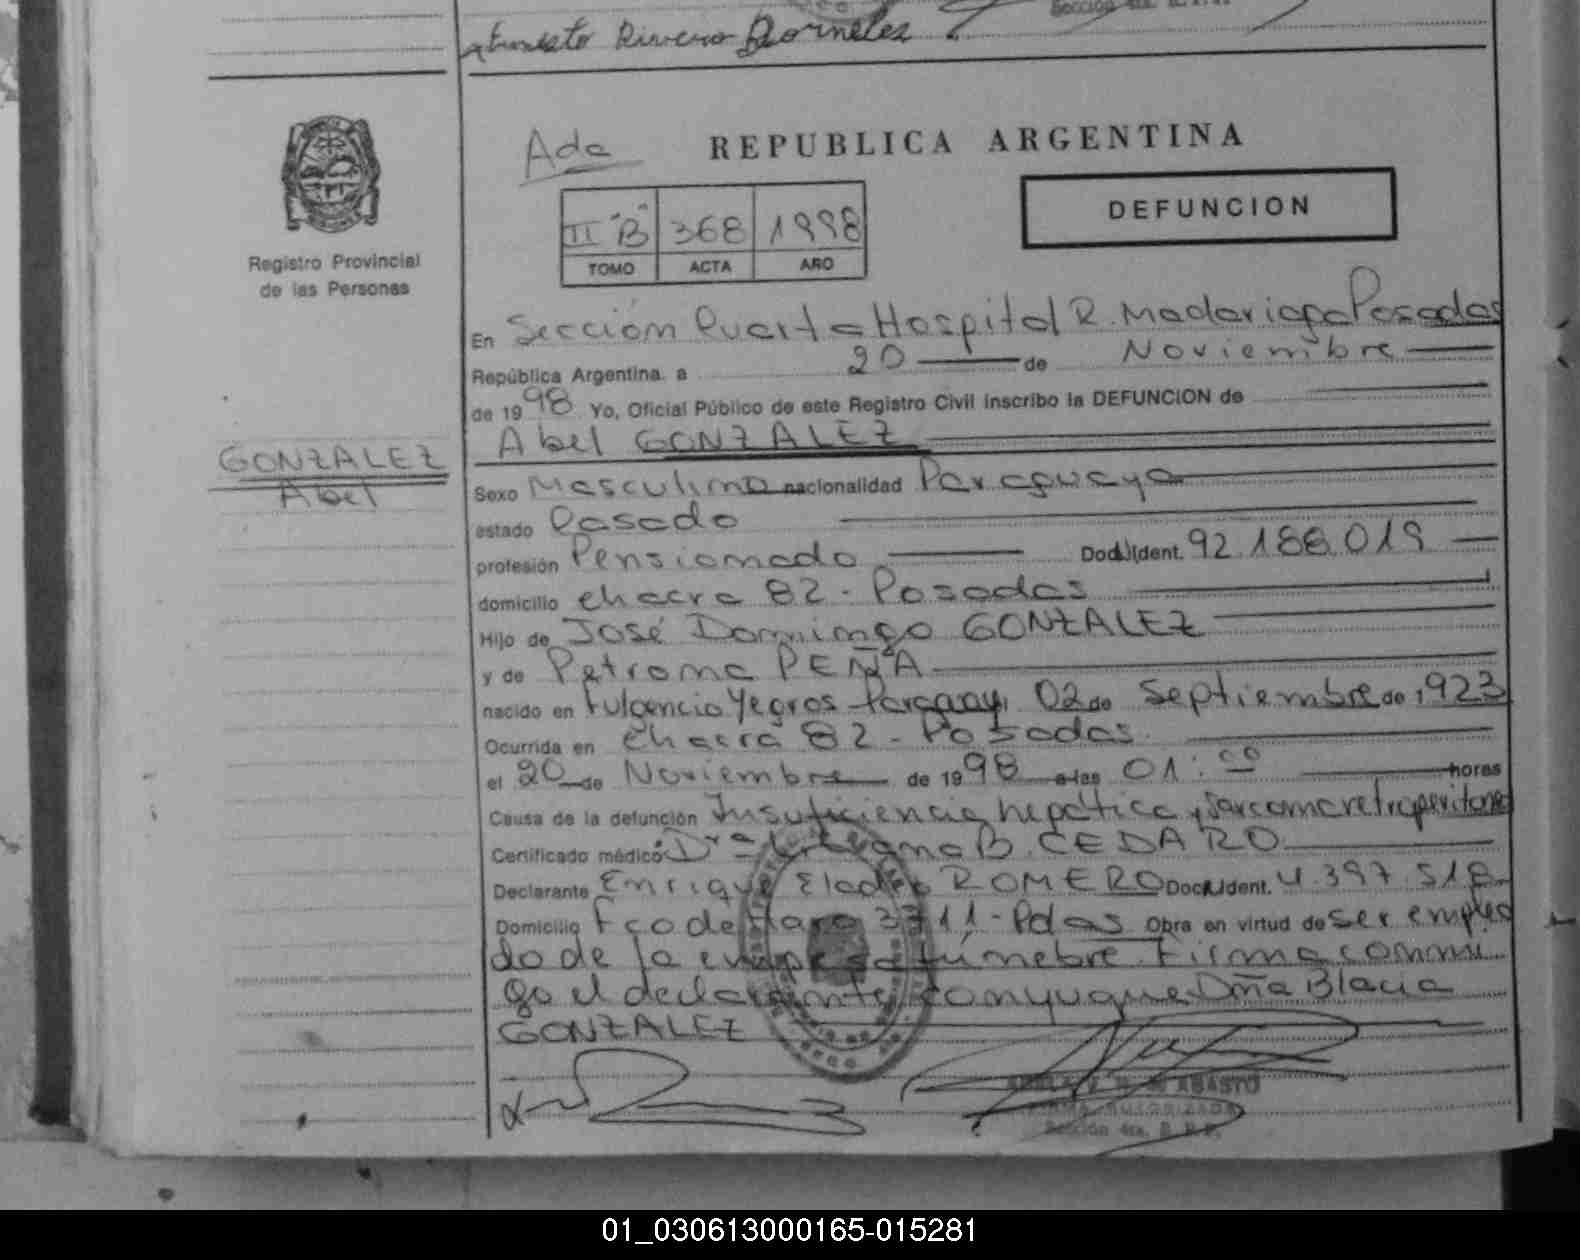 Ernesto Rivero Dorneles
Ada
REPUBLICA ARGENTINA
II "B" 368 1998
TOMO ACTA AÑO
DEFUNCION
Registro Provincial
de las Personas
En Sección Cuarta Hospital R. Madariaga Posadas
República Argentina. a 20 de Noviembre
de 1998 Yo, Oficial Público de este Registro Civil inscribo la DEFUNCION de
Abel GONZALEZ
GONZALEZ
Abel
Sexo Masculino nacionalidad Paraguaya
estado Casado
profesión Pensionado Doc. Ident. 92.188.019
domicilio chacra 82 - Posadas
Hijo de José Domingo GONZALEZ
y de Petrona PEÑA
nacido en Fulgencio Yegros - Paraguay, 02 de Septiembre de 1923
Ocurrida en chacra 82 - Posadas.
el 20 de Noviembre de 1998 a las 01:00 horas
Causa de la defunción Insuficiencia hepática y Sarcoma retroperitoneal
Certificado médico Dra B. CEDARO
Declarante Enrique Eladio ROMERO Doc. Ident. 4.397.518
Domicilio Fco de Haro 3711 - Pdas Obra en virtud de ser emplea
do de la empresa fúnebre. Firma conmi
go el declarante conyugue Dña Blacia
GONZALEZ
ABASTO
FIRMA AUTORIZADA
Sección 4ta. R.P.P.
01_030613000165-015281